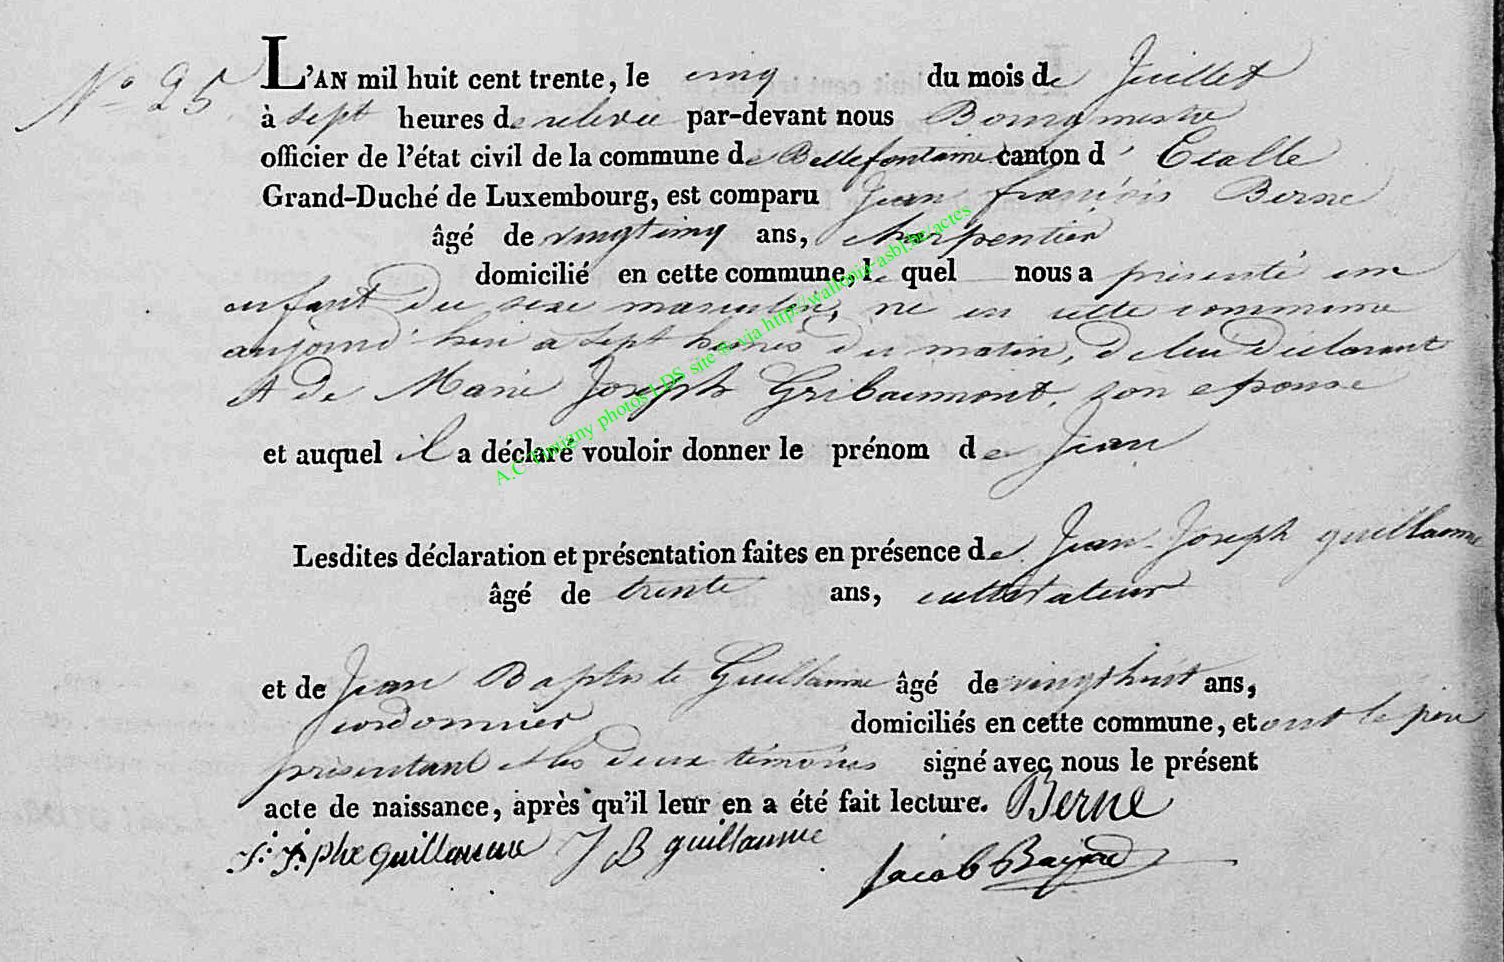 N° 25
L'AN mil huit cent trente, le cinq du mois de Juillet
à sept heures de relevée par-devant nous Bourgmestre
officier de l'état civil de la commune de Bellefontaine canton d' Etalle
Grand-Duché de Luxembourg, est comparu Jean françois Berne
âgé de vingtcinq ans, charpentier
domicilié en cette commune, le quel nous a présenté un
enfant du sexe masculin, né en cette commune
aujourd'hui a sept heures du matin, de lui déclarant
et de Marie Joseph Gribaumont son epouse
et auquel il a déclaré vouloir donner le prénom de Jean
Lesdites déclaration et présentation faites en présence de Jean-Joseph guillaume
âgé de trente ans, cultivateur
et de Jean Baptiste Guillaume âgé de vingthuit ans,
cordonnier domiciliés en cette commune, et ont le père
présentant et les deux témoins signé avec nous le présent
acte de naissance, après qu'il leur en a été fait lecture. Berne
J: J:phe guillaume J B guillaume
Jacob
A.C. Tintigny photos LDS site & via http://wallonia-asbl.be/actes